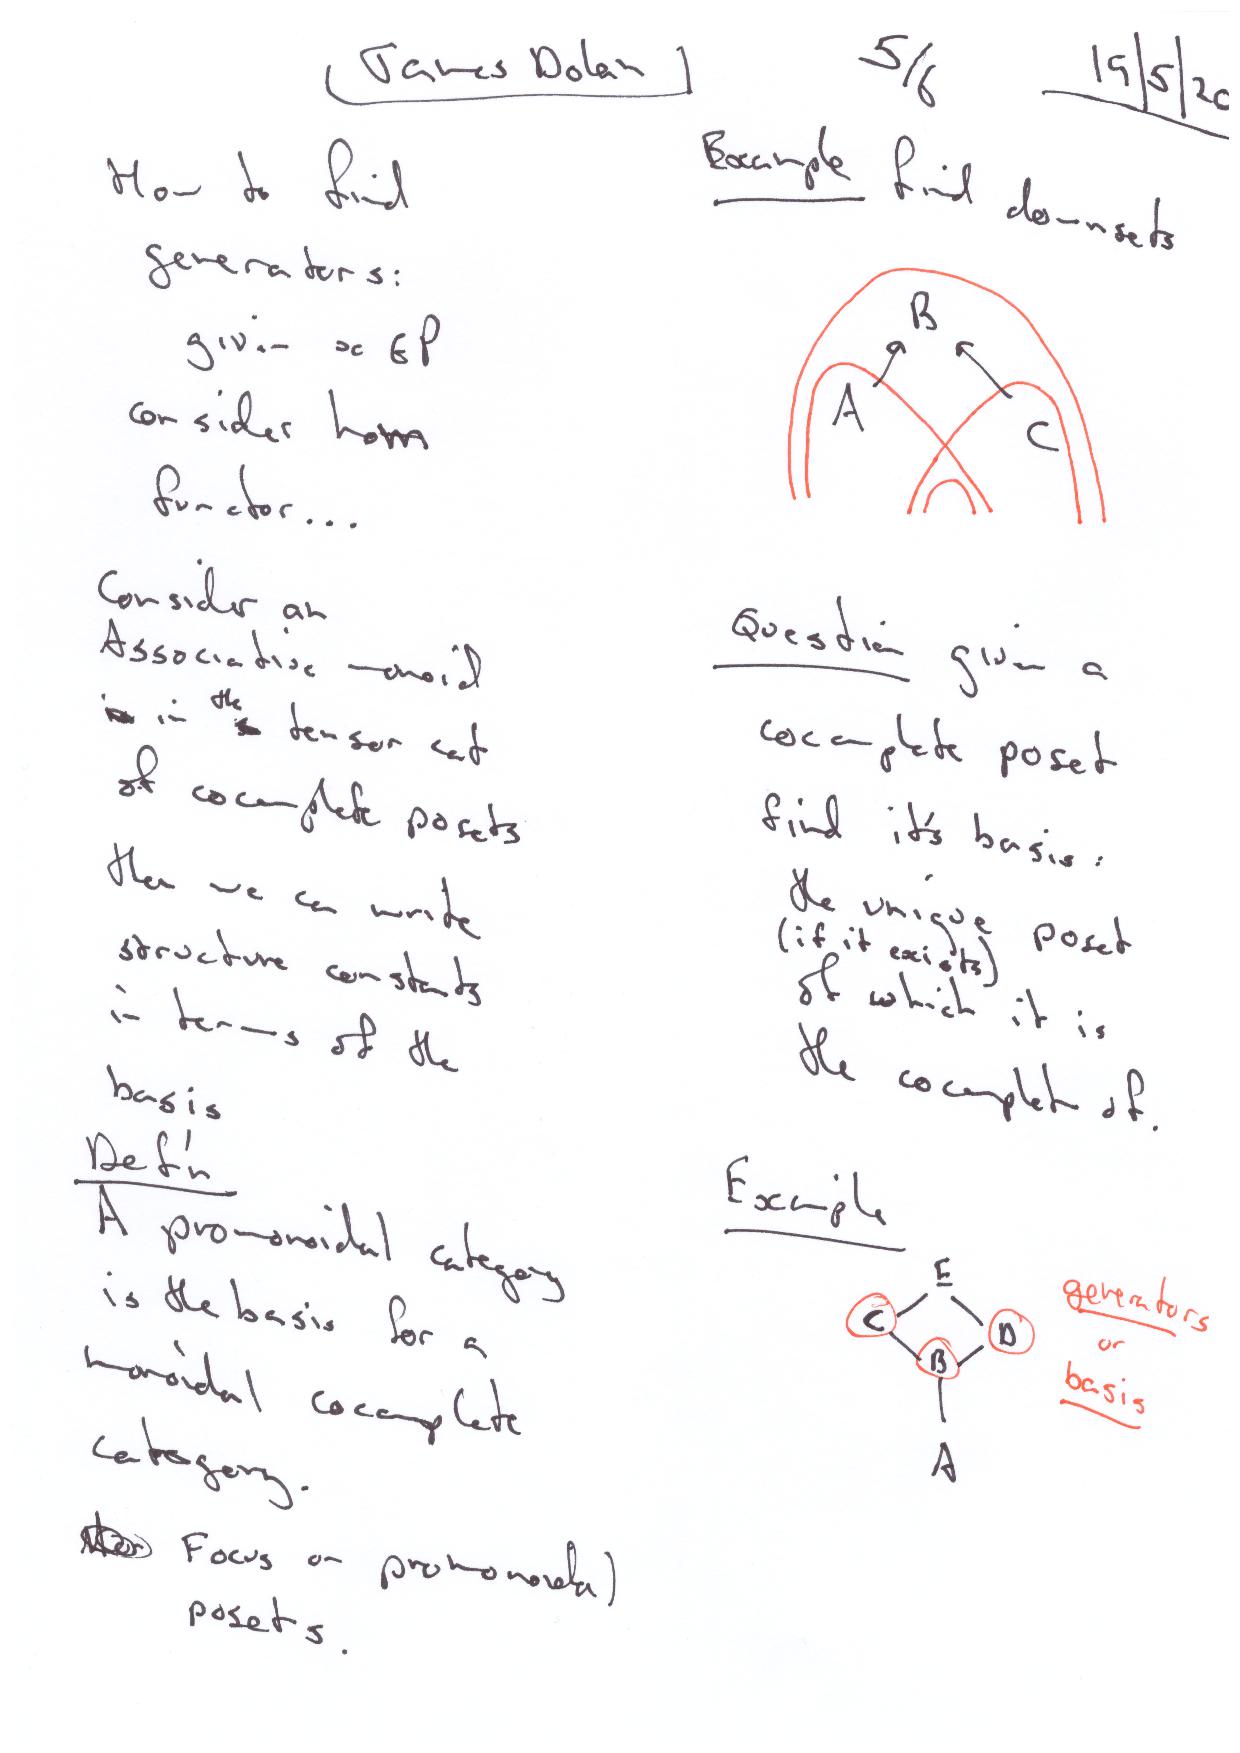 James Dolan
5/6
19/5/20
How to find
generators:
given x ∈ P
consider hom
functor...
Consider an
Associative monoid
in the tensor cat
of cocomplete posets
then we can write
structure constants
in terms of the
basis
Def'n
A promonoidal category
is the basis for a
monoidal cocomplete
category.
Focus on promonoidal
posets.
Example find downsets
B
A
C
Question given a
cocomplete poset
find it's basis:
the unique poset
(if it exists)
of which it is
the cocomplet of.
Example
E
C
D
B
A
generators
or
basis